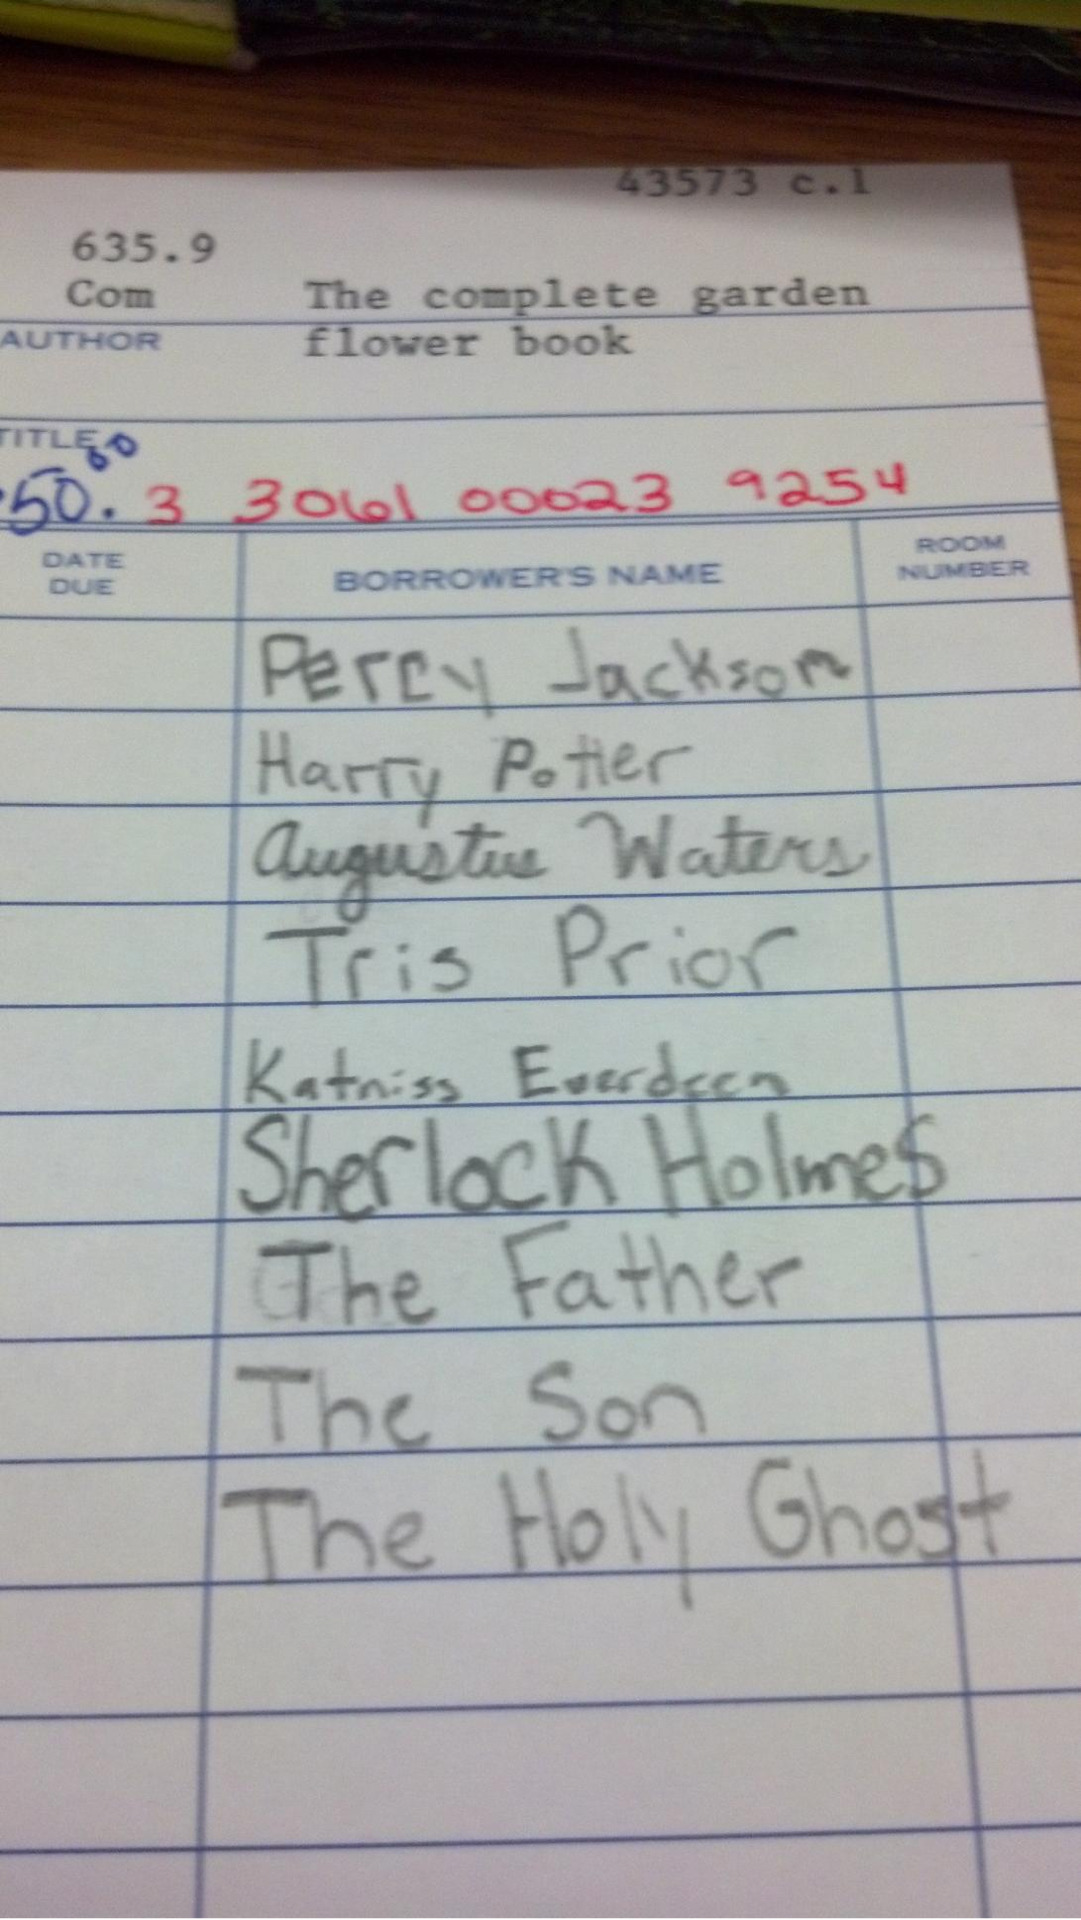 43573 c.1
635.9
Com The complete garden
AUTHOR flower book
TITLE
50.
80
3 3061 00023 9254
DATE DUE BORROWER'S NAME ROOM NUMBER
Percy Jackson
Harry Potter
Augustus Waters
Tris Prior
Katniss Everdeen
Sherlock Holmes
The Father
The Son
The Holy Ghost